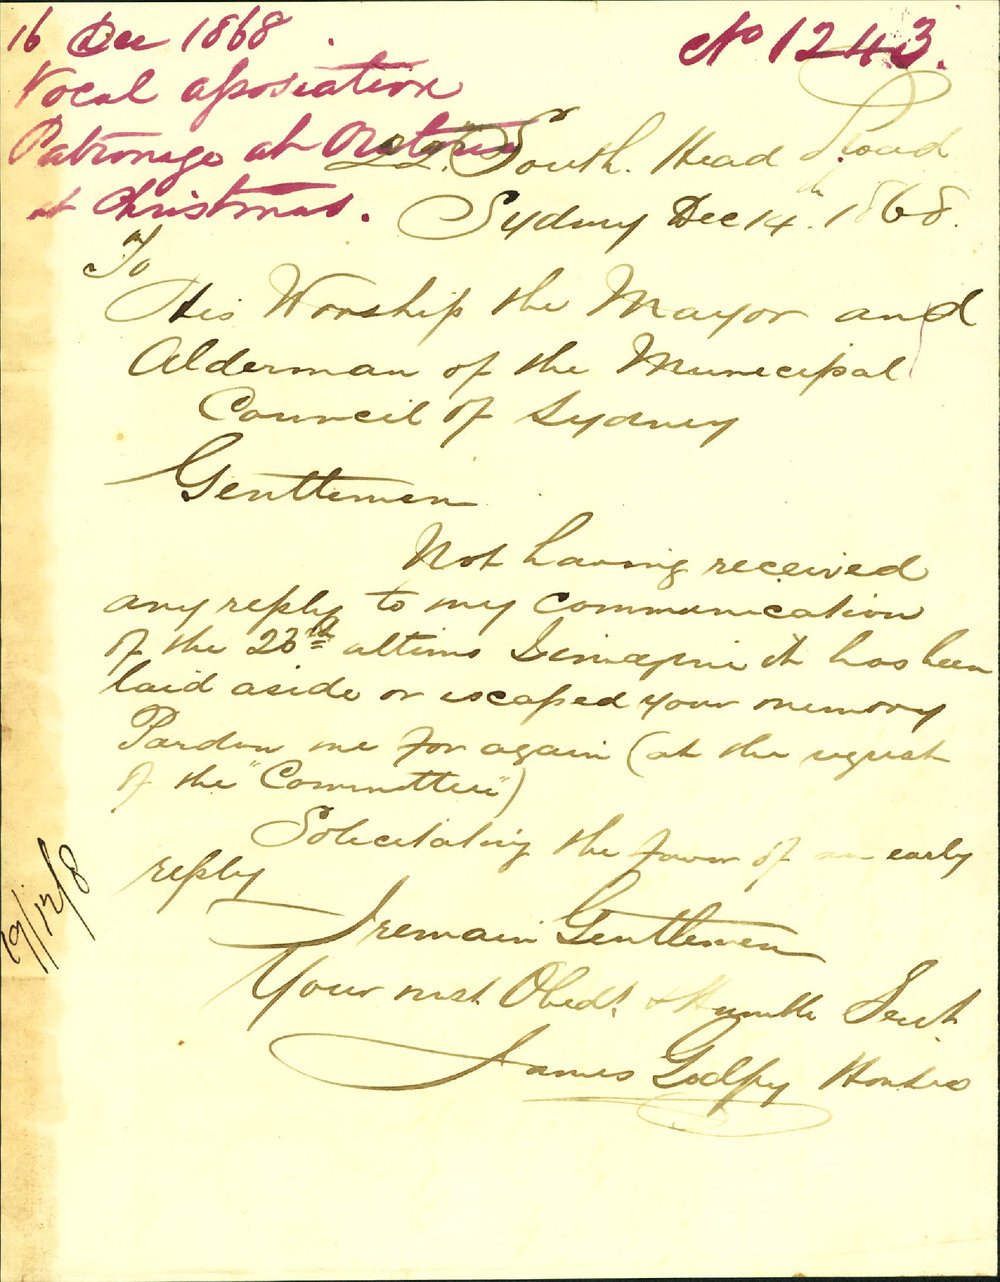 16 Dec 1868
No 1243.
Vocal Association
Patronage at Oratorio
at Christmas.
22. South Head Road
Sydney Dec 14th 1868.
To
His Worship the Mayor and
Alderman of the Municipal
Council of Sydney
Gentlemen
Not having received
any reply to my communication
of the 23rd ultimo I imagine it has been
laid aside or escaped your memory
Pardon me for again (at the request
of the "Committee")
Solicitating the favor of an early
reply
I remain Gentlemen
Your most Obedt. & Humble Servt
James Godfrey Hon Sec
19/12/8